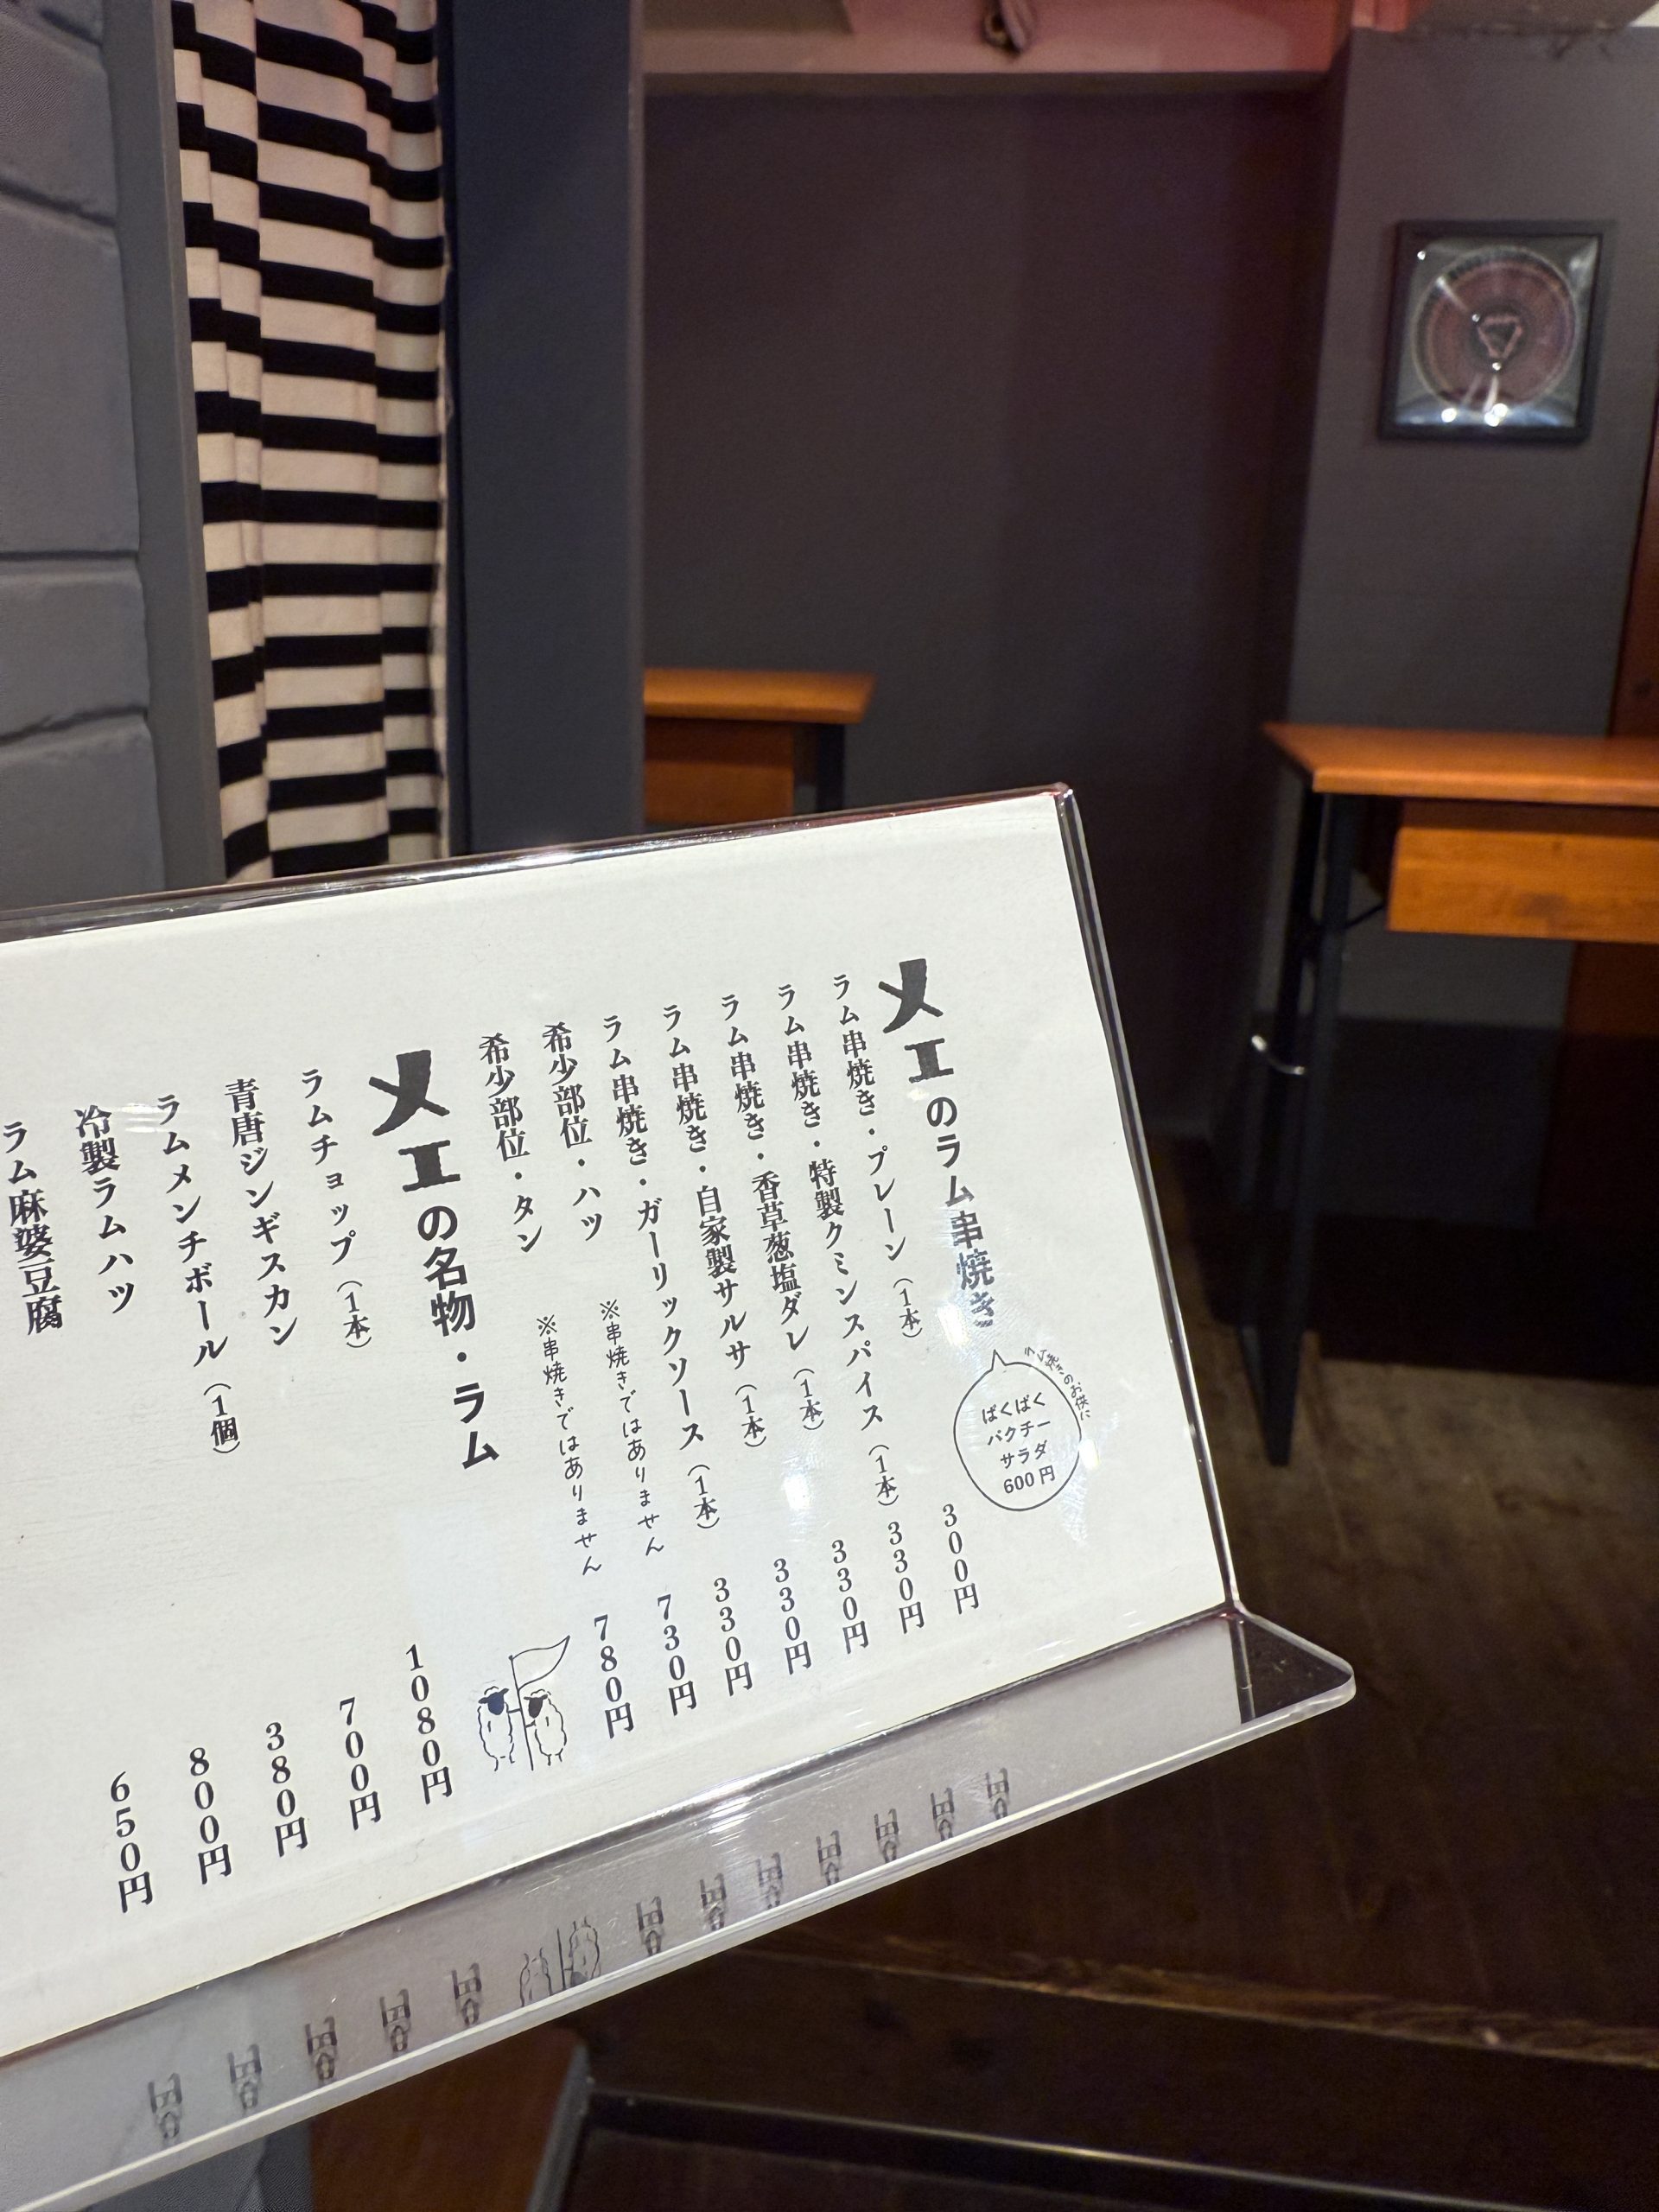 メエのラム串焼き
ラム焼きのお供に
ぱくぱく
パクチー
サラダ
600円
ラム串焼き・プレーン（1本） 300円
ラム串焼き・特製クミンスパイス（1本） 330円
ラム串焼き・香草葱塩ダレ（1本） 330円
ラム串焼き・自家製サルサ（1本） 330円
ラム串焼き・ガーリックソース（1本） 330円
希少部位・ハツ ※串焼きではありません 730円
希少部位・タン ※串焼きではありません 780円
メエの名物・ラム
ラムチョップ（1本） 1080円
青唐ジンギスカン 700円
ラムメンチボール（1個） 380円
冷製ラムハツ 800円
ラム麻婆豆腐 650円